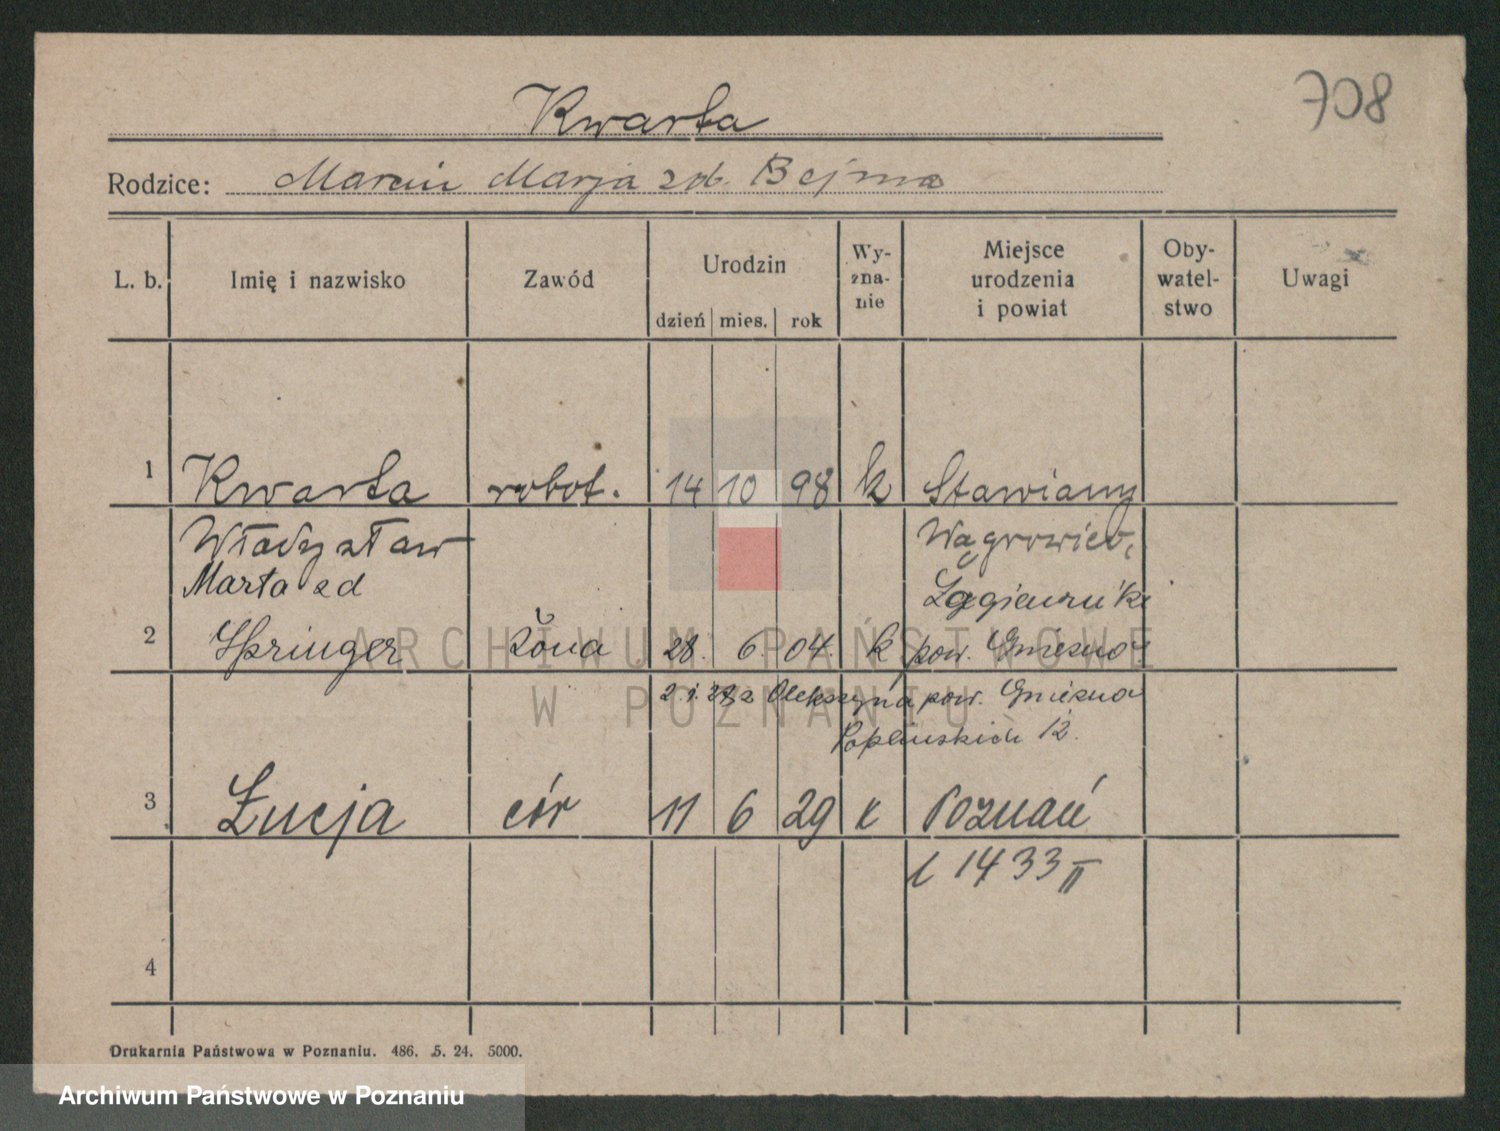 Kwarta
708
Rodzice: Marcin Marja zd. Bejma
L. b. Imię i nazwisko Zawód Urodzin dzień mies. rok Wy-zna-nie Miejsce urodzenia i powiat Oby-watel-stwo Uwagi
1 Kwarta robot. 14 10 98 k Stawiany
Władysław Wągrowiec,
Marta zd Łagiewniki
2 Springer żona 28. 6. 04. k pow. Gniezno
z Olekszyna pow. Gniezno
12.
3 Łucja cór 11 6 29 k Poznań
1433 II
4
Drukarnia Państwowa w Poznaniu. 486. 5. 24. 5000.
ARCHIWUM PAŃSTWOWE
W POZNANIU
Archiwum Państwowe w Poznaniu